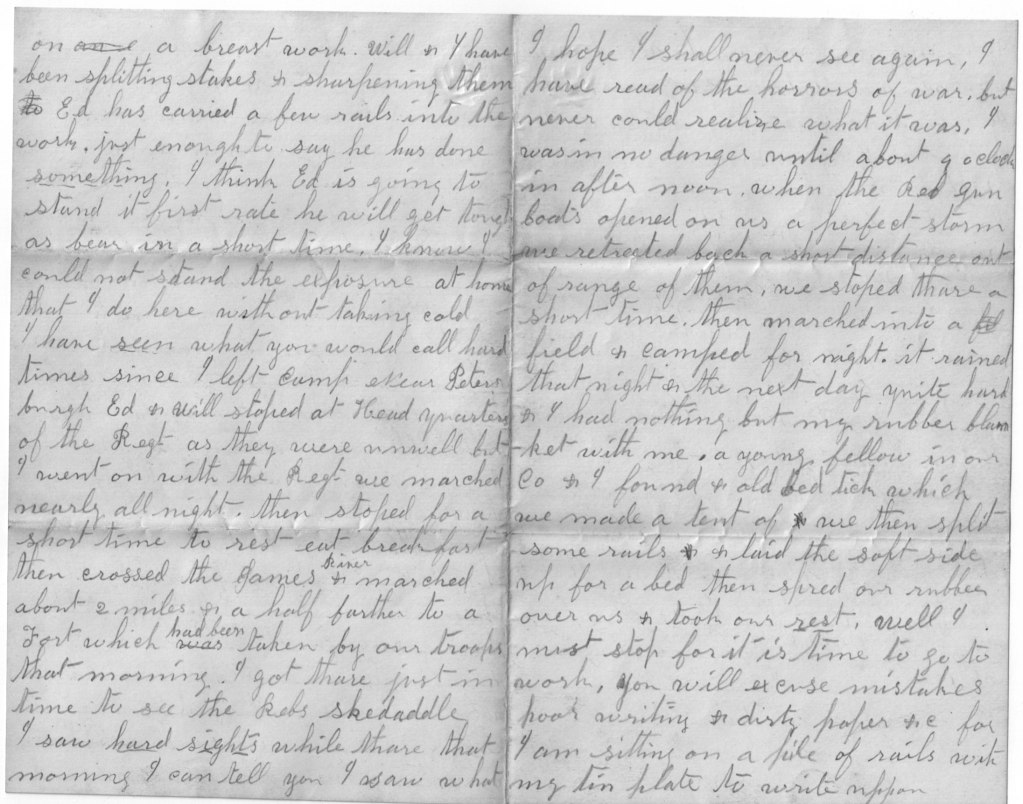 on a breast work. Will & I have
been splitting stakes & sharpening them
Ed has carried a few rails into the
work. just enough to say he has done
something. I think Ed is going to
stand it first rate he will get tough
as bear in a short time. I know I
could not stand the exposure at home
that I do here without taking cold
I have seen what you would call hard
times since I left camp near Peters
burgh Ed & Will stoped at Head quarters
of the Regt as they were unwell but
I went on with the Regt we marched
nearly all night. then stoped for a
short time to rest eat breakfast
then crossed the James River & marched
about 2 miles & a half farther to a
Fort which had been taken by our troops
that morning. I got thare just in
time to see the Rebs skedaddle
I saw hard sights while thare that
morning I can tell you I saw what
I hope I shall never see again, I
have read of the horrors of war, but
never could realize what it was, I
was in no danger until about oclock
in after noon. when the Reb gun
boats opened on us a perfect storm
we retreated back a short distance out
of range of them, we stoped thare a
short time. then marched into a
field & camped for night. it rained
that night & the next day quite hard
& I had nothing but my rubber blan
-ket with me. a young fellow in our
Co & I found & old bed tick which
we made a tent of we then split
some rails & laid the soft side
up for a bed then spred our rubber
over us & took our rest, well I
must stop for it is time to go to
work, you will excuse mistakes
poor writing & dirty paper &c for
I am sitting on a pile of rails with
my tin plate to write uppon